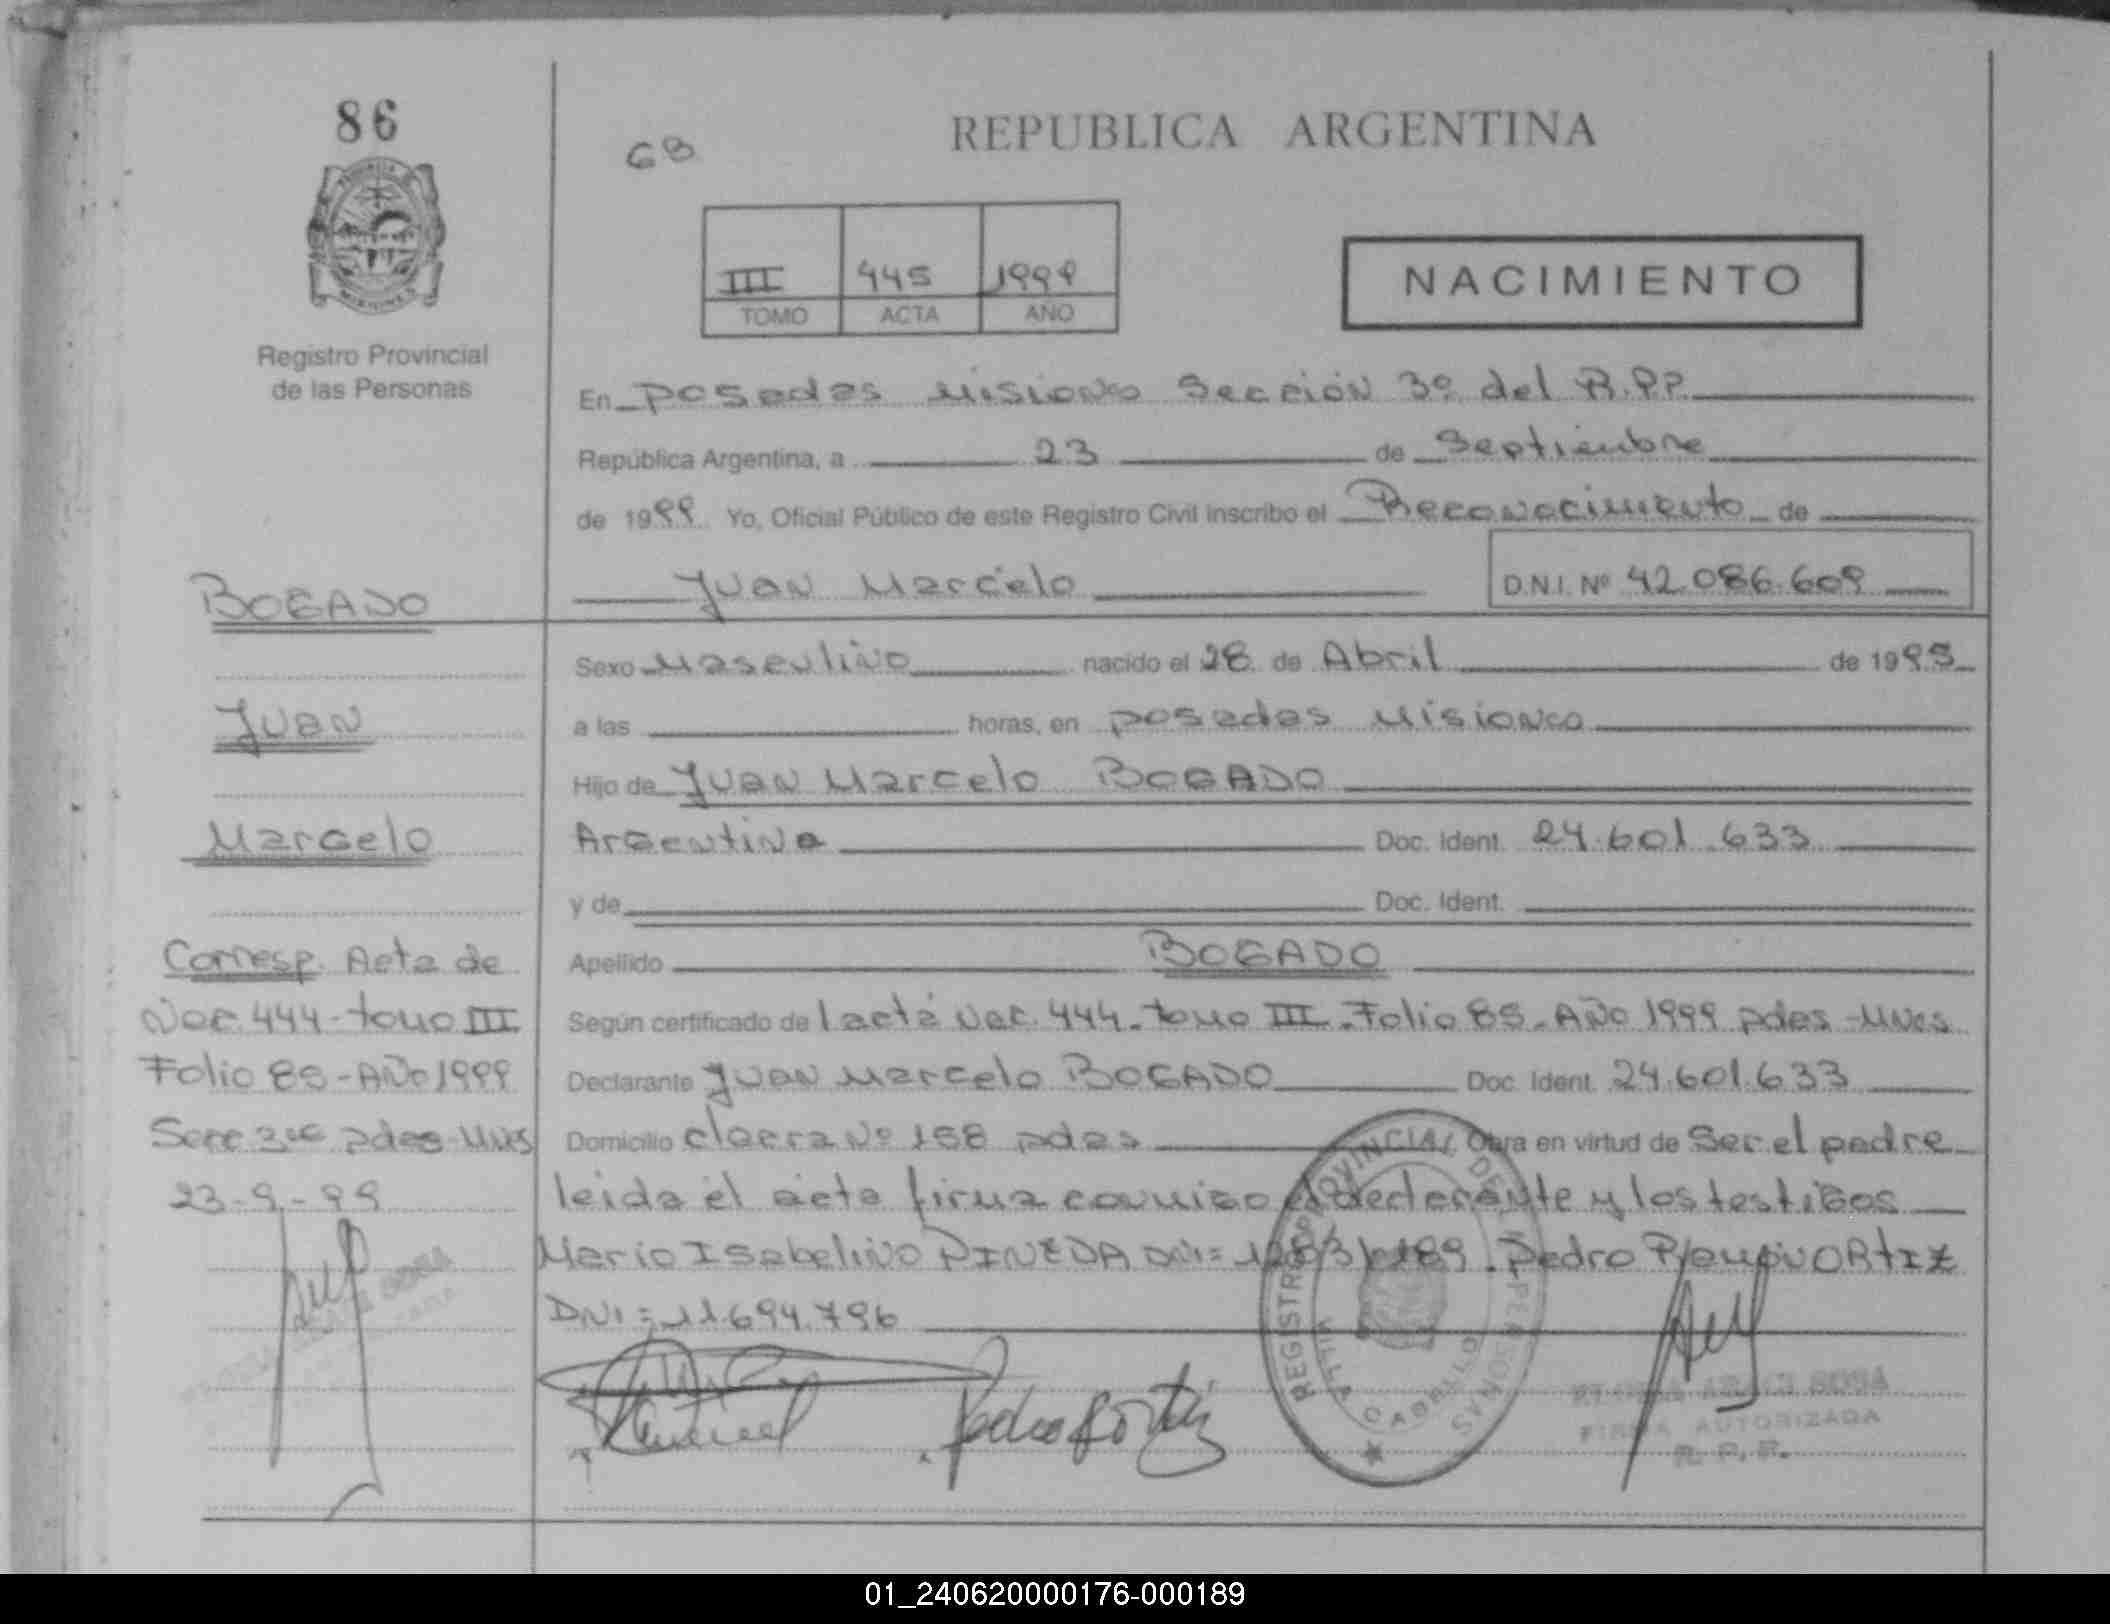 86
Registro Provincial
de las Personas
BOGADO
Juan
Marcelo
Corresp. Acta de
Nac. 444 - tomo III
Folio 85 - Año 1999
Secc. 3ra pdas - Mnes
23-9-99
GB
REPUBLICA ARGENTINA
III 445 1999
TOMO ACTA AÑO
NACIMIENTO
En Posadas Misiones Sección 3º del R.P.P.
República Argentina, a 23 de Septiembre
de 1999 Yo, Oficial Público de este Registro Civil inscribo el Reconocimiento de
Juan Marcelo D.N.I. Nº 42.086.609
Sexo Masculino nacido el 28 de Abril de 1995
a las horas, en posadas Misiones
Hijo de Juan Marcelo BOGADO
Argentina Doc. Ident. 24.601.633
y de Doc. Ident.
Apellido BOGADO
Según certificado de l acta Nac. 444 - Tomo III - Folio 85 - Año 1999 pdas - Mnes
Declarante Juan Marcelo BOGADO Doc. Ident. 24.601.633
Domicilio Nº 158 pdas Obra en virtud de Ser el padre
leida el acta firma conmigo el declarante y los testigos
Mario Isabelino PINEDA DNI= Pedro ORTIZ
DNI = 11694.796
REGISTRO PROVINCIAL DE PERSONAS
VILLA CABELLO
SOSA
FIRMA AUTORIZADA
R. P. P.
01_240620000176-000189